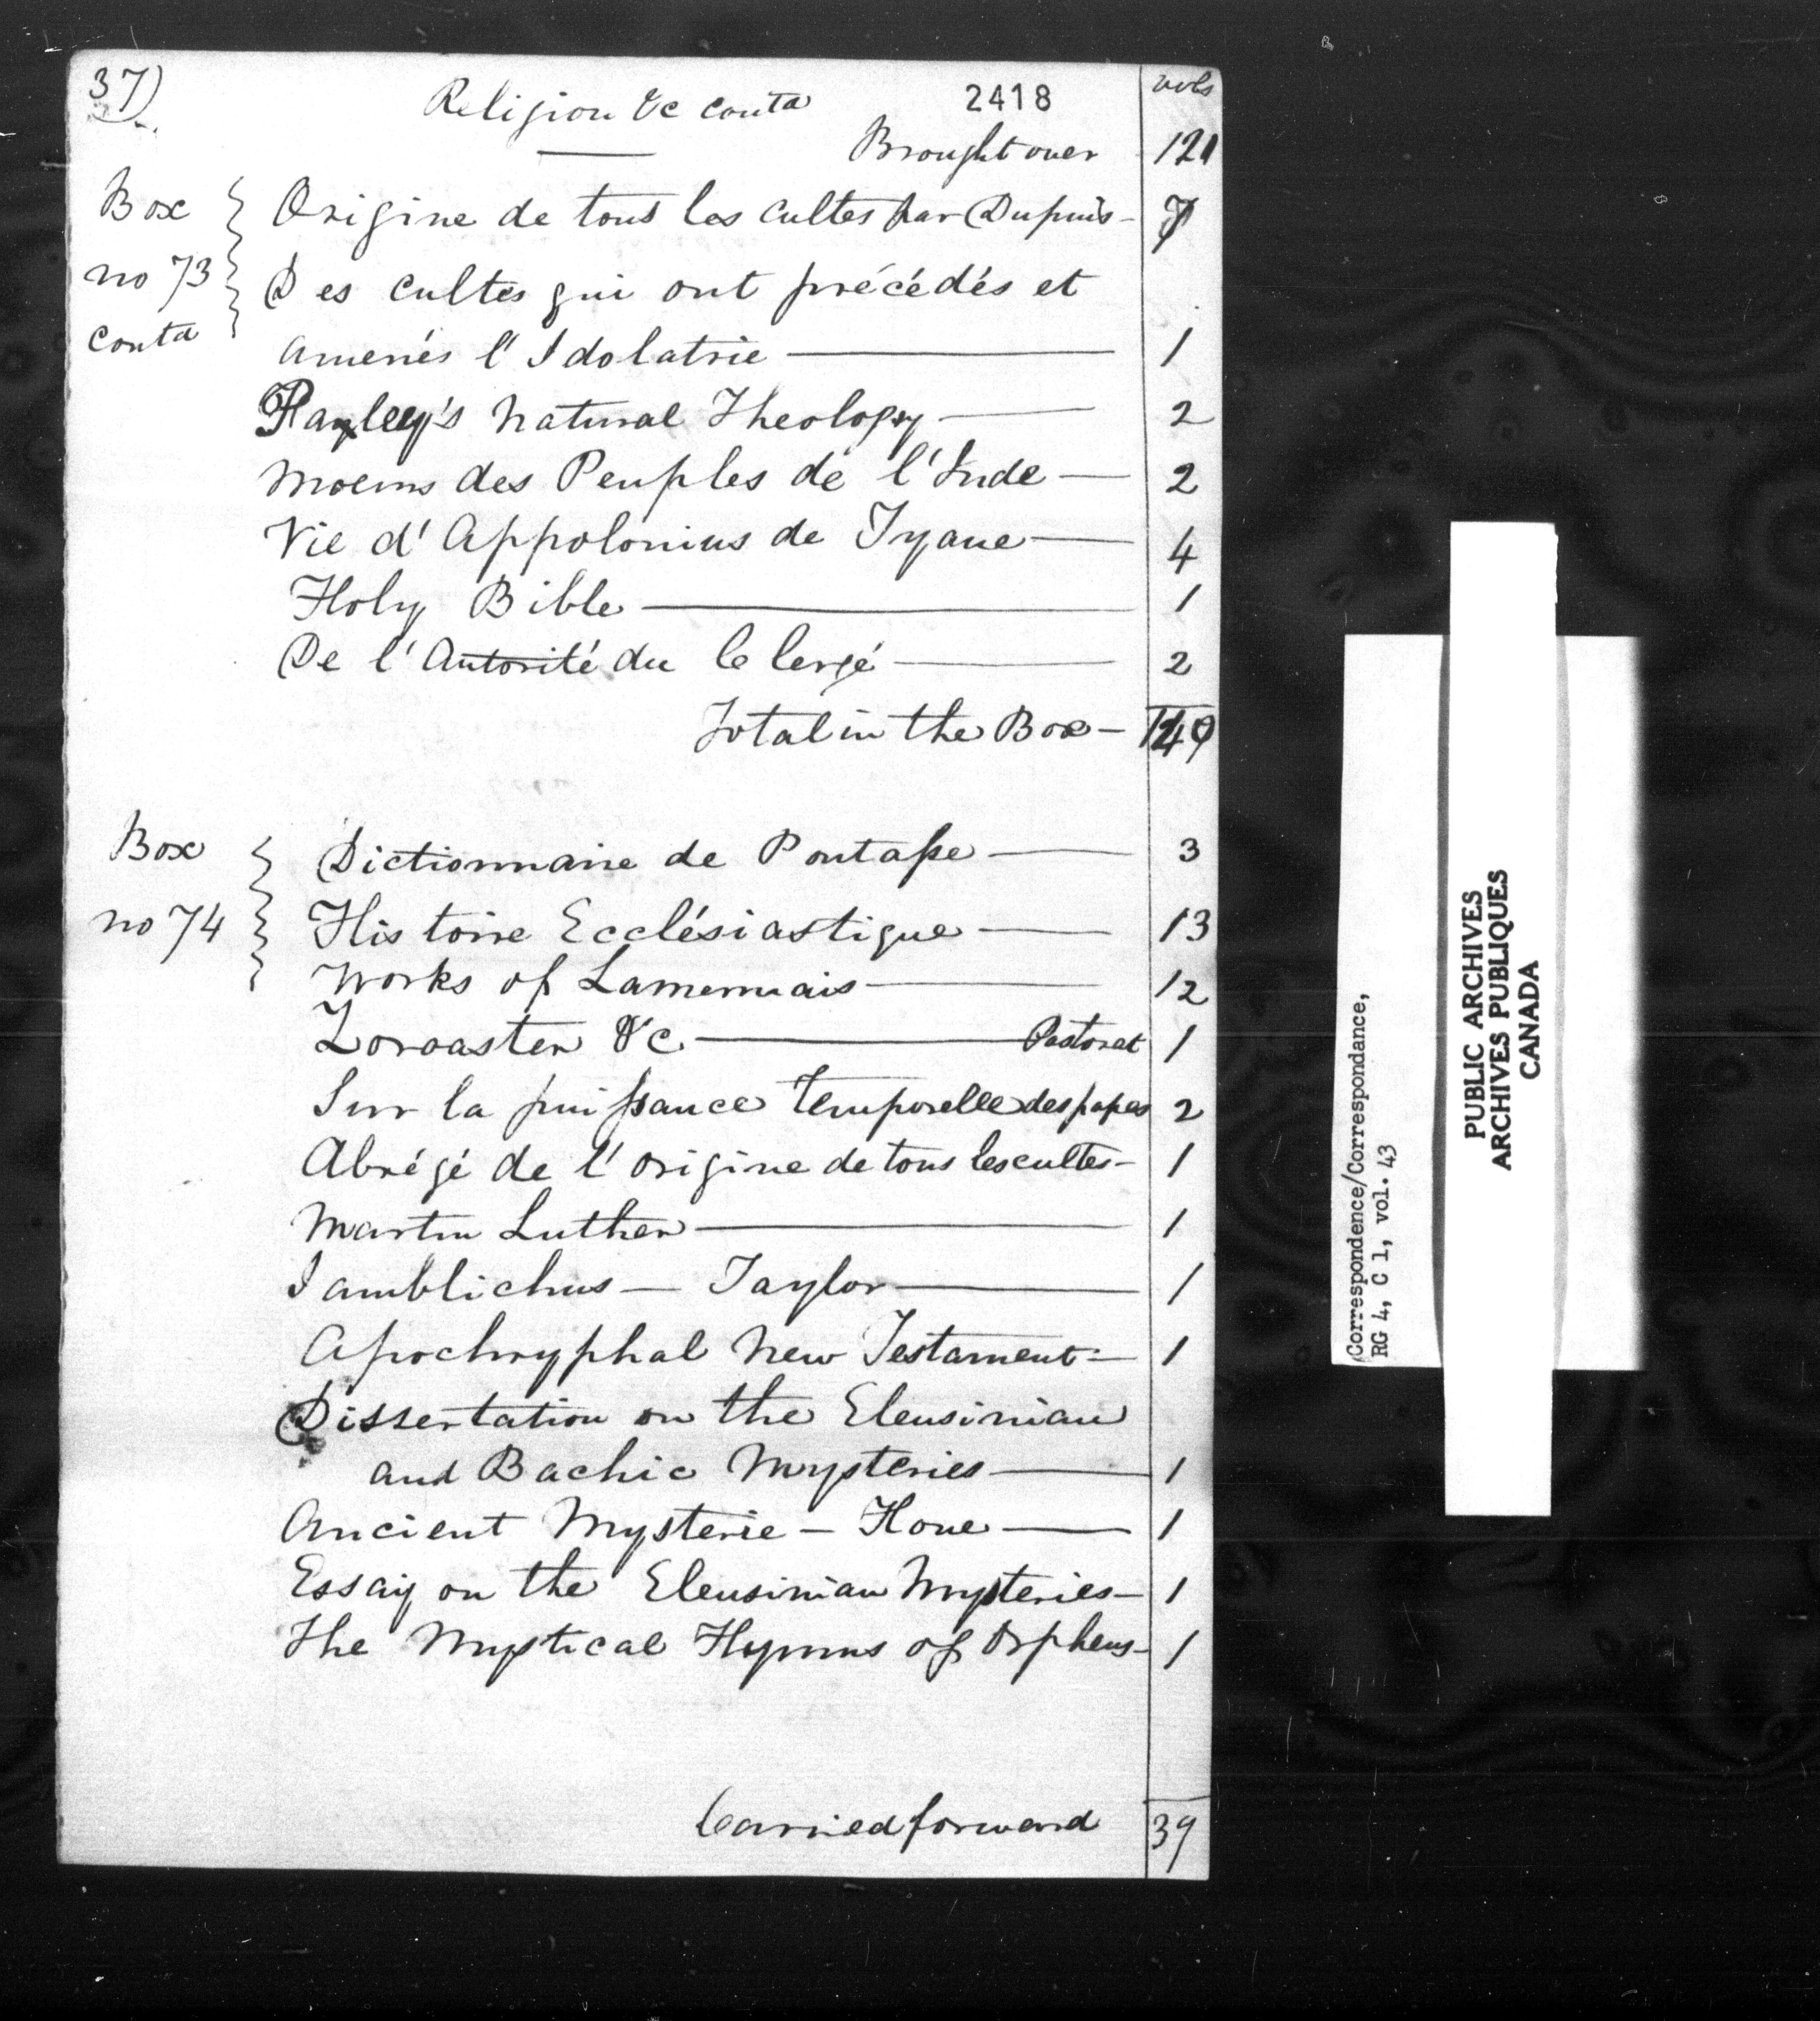 37)
Religion &c contd 2418 vols
Brought over 121
Box Origine de tous les cultes par Dupuis - 7
no 73 Des cultes qui ont précédés et
contd amenés l'Idolatrie 1
Payley's Natural Theology 2
Moeurs des Peuples de l'Inde 2
Vie d'Appolonius de Tyane 4
Holy Bible 1
De l'Autorité du Clergé 2
Total in the Box - 140
Box Dictionnaire de Pontasse 3
no 74 Histoire Ecclésiastique 13
Works of Lamennais 12
Zoroaster &c Pastoret 1
Sur la puissance temporelle des papes 2
Abrégé de l'origine de tous les cultes - 1
Martin Luther 1
Iamblichus - Taylor 1
Apochryphal New Testament - 1
Dissertation on the Eleusinian
and Bachic Mysteries 1
Ancient Mysterie - Hone 1
Essay on the Eleusinian Mysteries - 1
The Mystical Hymns of Orpheus - 1
Carried forward 39
(Correspondence/Correspondance,
RG 4, C 1, vol. 43
PUBLIC ARCHIVES
ARCHIVES PUBLIQUES
CANADA